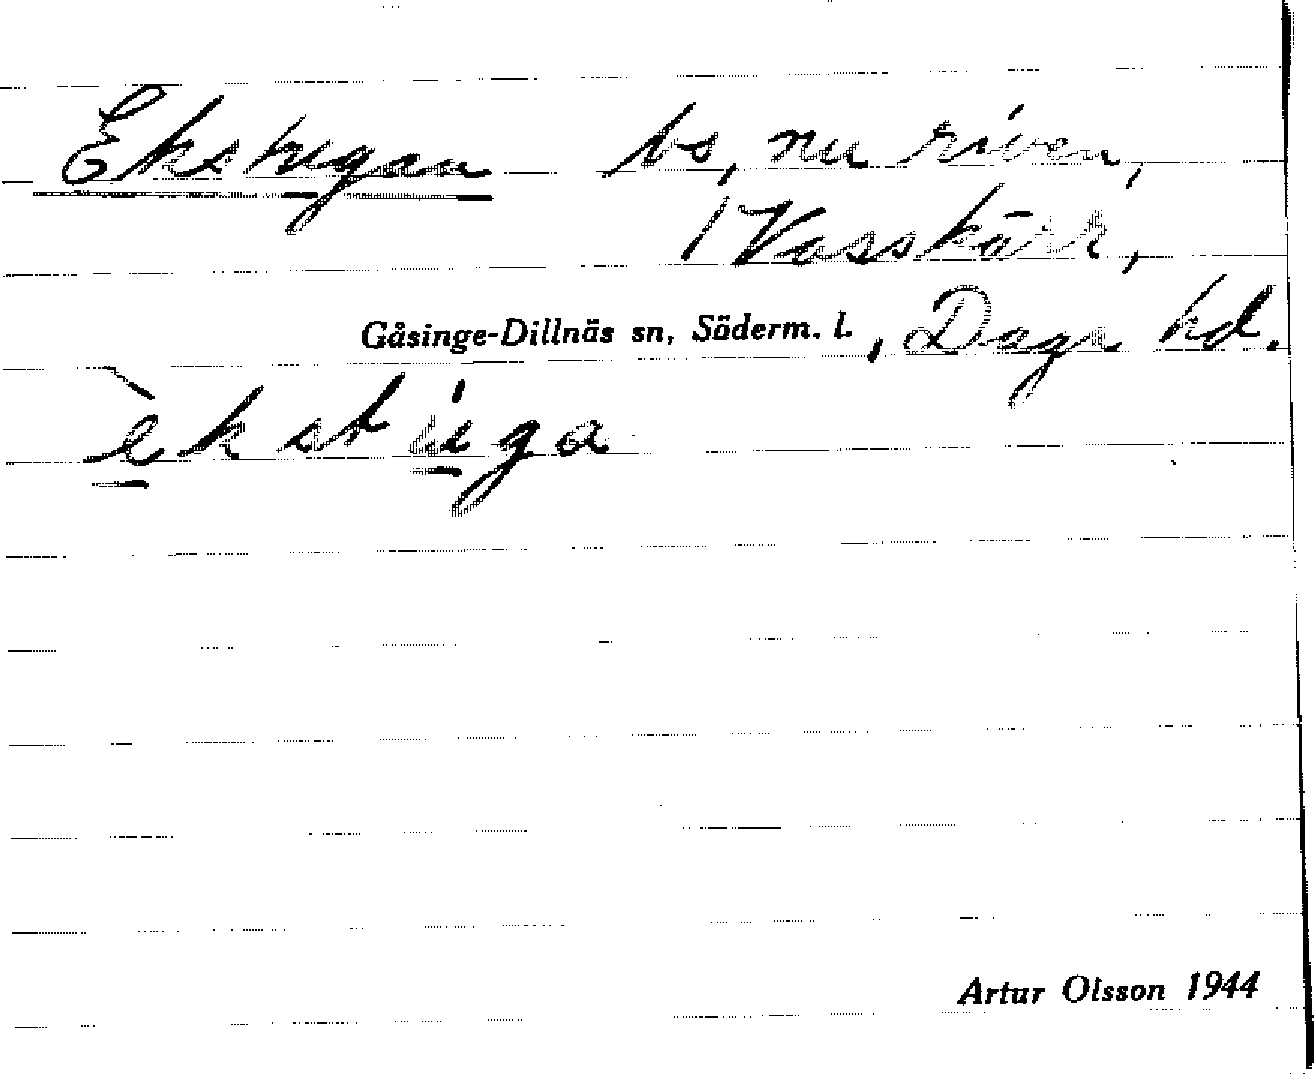 Ekstugan bs, nu riven,
/ Vasskärr,
Gåsinge-Dillnäs sn, Söderm. l., Daga hd.
èkstu̍ga
Artur Olsson 1944